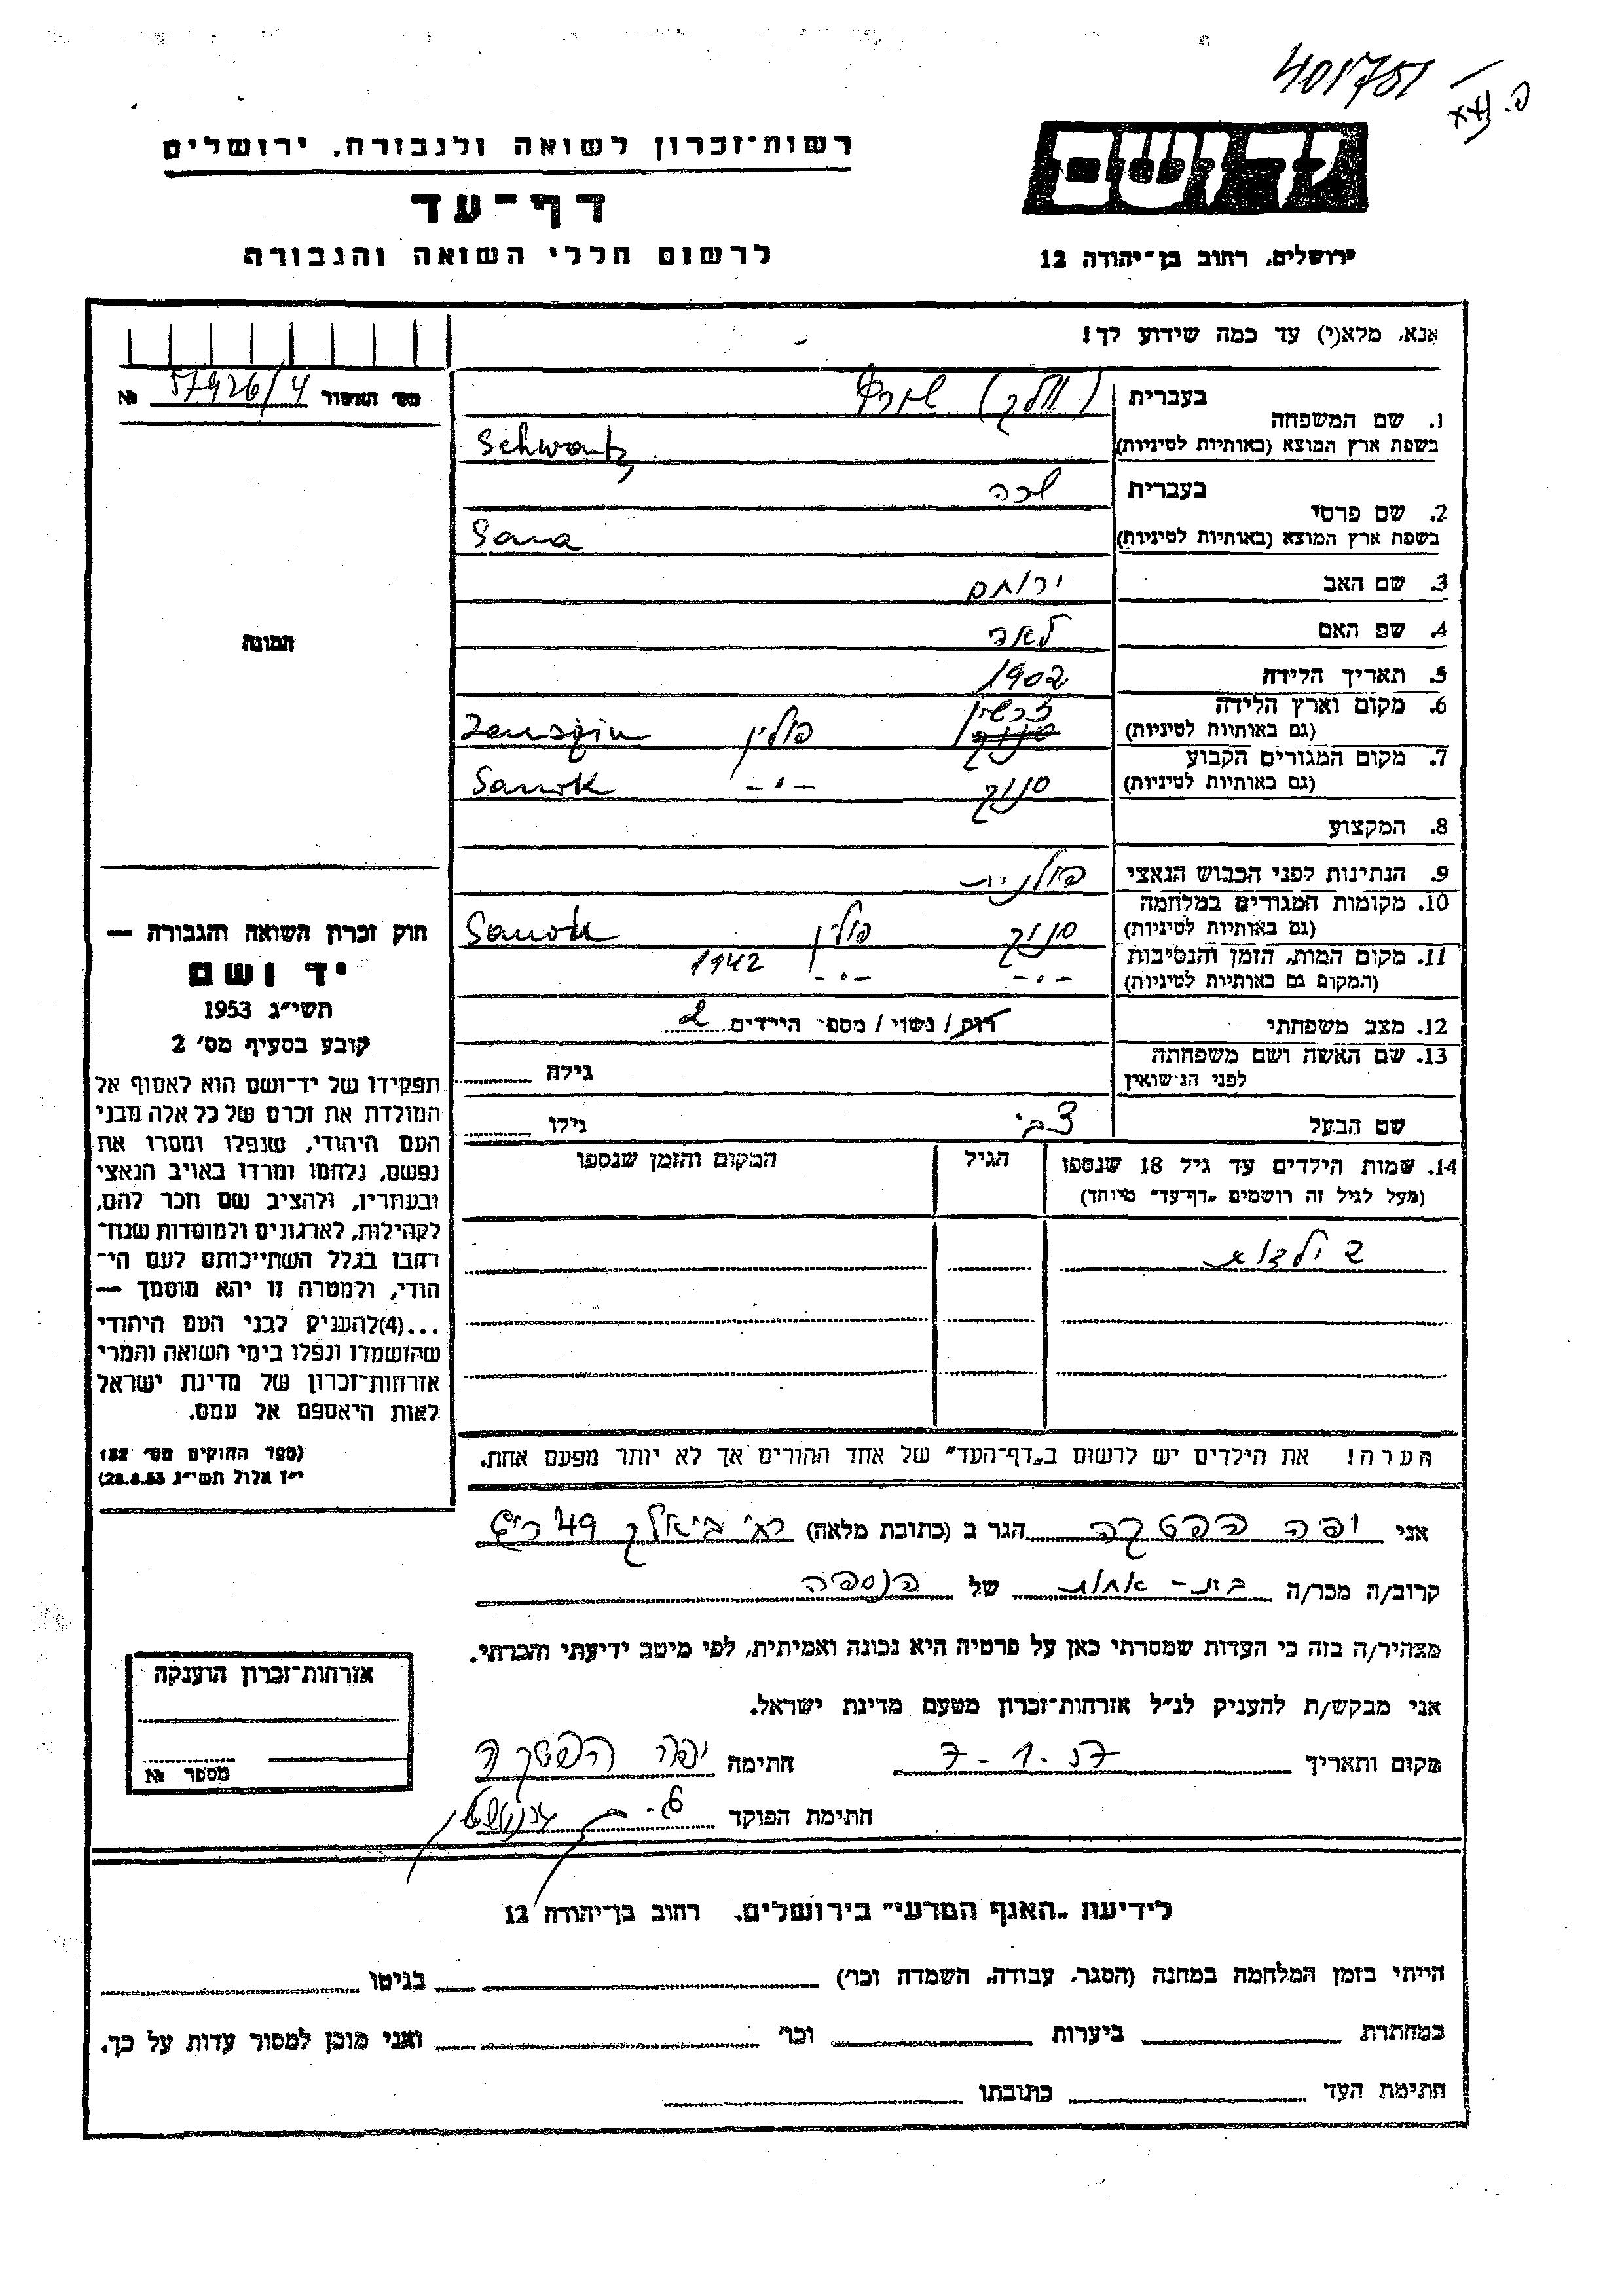 401751
רשות־זכרון לשואה ולגבורה, ירושלים
דף־עד
לרשום חללי השואה והגבורה
יד ושם
ירושלים, רחוב בן־יהודה 12
אנא, מלא(י) עד כמה שידוע לך!
מס׳ האשור 57926/4 №
1. שם המשפחה
בעברית שורץ
בשפת ארץ המוצא (באותיות לטיניות) Schwartz
2. שם פרטי
בעברית שרה
בשפת ארץ המוצא (באותיות לטיניות) Sara
3. שם האב ירוחם
4. שם האם לאה
5. תאריך הלידה 1902
6. מקום וארץ הלידה
(גם באותיות לטיניות) זרשין סנוק פולין
7. מקום המגורים הקבוע
(גם באותיות לטיניות) סנוק -"- Sanok
8. המקצוע
9. הנתינות לפני הכבוש הנאצי פולנית
10. מקומות המגורים במלחמה
(גם באותיות לטיניות) סנוק פולין Sanok
11. מקום המות, הזמן והנסיבות
(המקום גם באותיות לטיניות) -"- -"- 1942
12. מצב משפחתי רווק/ נשוי/ מספר הילדים 2
13. שם האשה ושם משפחתה
לפני הנישואין גילה
שם הבעל צבי גילו
14. שמות הילדים עד גיל 18 שנספו
(מעל לגיל זה רושמים „דף־עד” מיוחד)
הגיל
המקום והזמן שנספו
2 ילדים
הערה! את הילדים יש לרשום ב„דף־העד” של אחד ההורים אך לא יותר מפעם אחת.
תמונה
חוק זכרון השואה והגבורה —
יד ושם
תשי״ג 1953
קובע בסעיף מס׳ 2
תפקידו של יד־ושם הוא לאסוף אל
המולדת את זכרם של כל אלה מבני
העם היהודי, שנפלו ומסרו את
נפשם, נלחמו ומרדו באויב הנאצי
ובעוזריו, ולהציב שם וזכר להם,
לקהילות, לארגונים ולמוסדות שנח־
רבו בגלל השתייכותם לעם הי־
הודי, ולמטרה זו יהא מוסמך —
...(4)להעניק לבני העם היהודי
שהושמדו ונפלו בימי השואה והמרי
אזרחות־זכרון של מדינת ישראל
לאות היאספם אל עמם.
(ספר החוקים מס׳ 132
י״ז אלול תשי״ג 28.8.53)
אני יפה הפטקה הגר ב (כתובת מלאה) רח׳ ביאליק 49
קרוב/ה מכר/ה בת-אחות של הנספה
מצהיר/ה בזה כי העדות שמסרתי כאן על פרטיה היא נכונה ואמיתית, לפי מיטב ידיעתי והכרתי.
אני מבקש/ת להעניק לנ״ל אזרחות־זכרון מטעם מדינת ישראל.
מקום ותאריך 7-1.57 חתימה יפה הפטקה
חתימת הפוקד
אזרחות־זכרון הוענקה
מספר №
לידיעת „האגף המדעי” בירושלים, רחוב בן־יהודה 12
הייתי בזמן המלחמה במחנה (הסגר, עבודה, השמדה וכו׳) בגיטו
במחתרת ביערות וכו׳ ואני מוכן למסור עדות על כך.
חתימת העד כתובתו